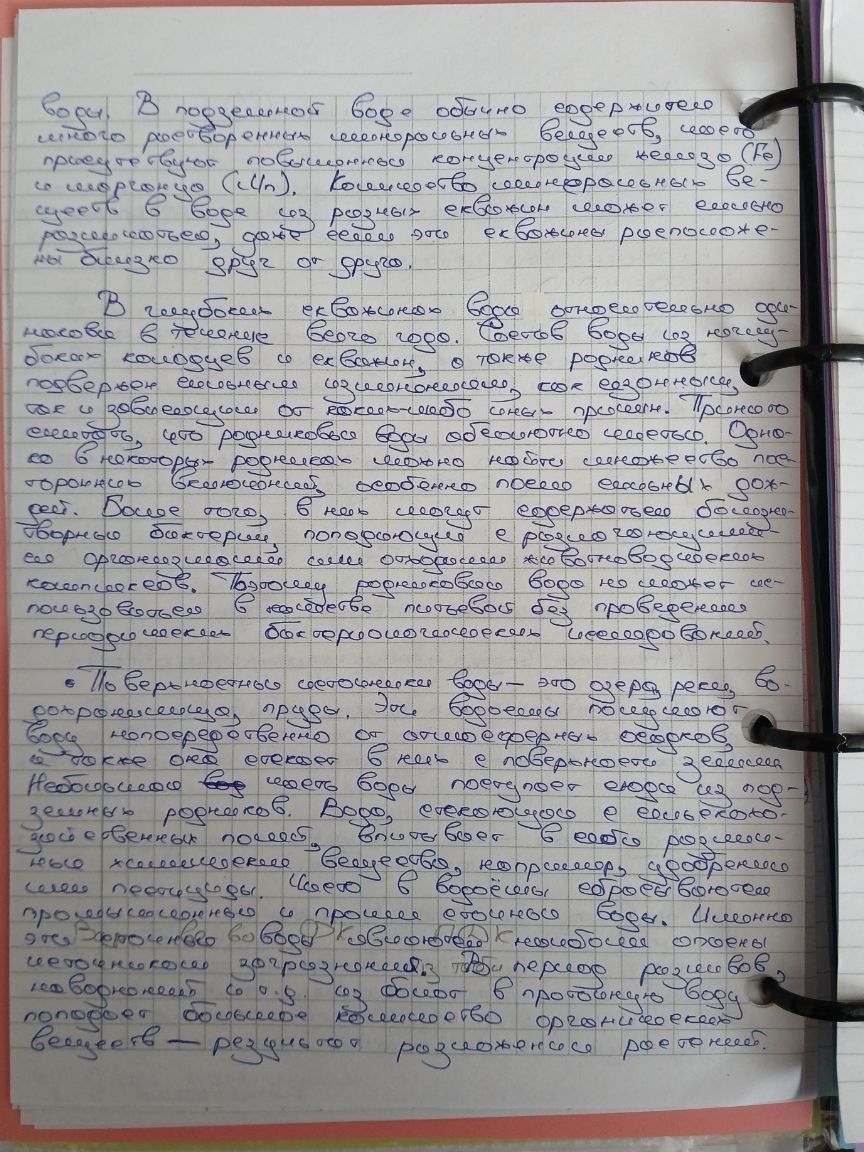 воды. В подземной воде обычно содержится
много растворенных минеральных веществ, часто
присутствуют повышенные концентрации железа (Fe)
и марганца (Mn). Количество минеральных ве-
ществ в воде из разных скважин может сильно
различаться, даже если эти скважины расположе-
ны близко друг от друга.
В глубоких скважинах вода относительно оди-
накова в течение всего года. Состав воды из неглу-
боких колодцев и скважин, а также родников
подвержен сильным изменениям, как сезонным,
так и зависящим от каких-либо иных причин. Принято
считать, что родниковые воды абсолютно чистые. Одна-
ко в некоторых родниках можно найти множество пос-
торонних включений, особенно после сильных дож-
дей. Более того, в них могут содержаться болезне-
творные бактерии, попадающие с разлагающими-
ся организмами или отходами животноводческих
комплексов. Поэтому родниковая вода не может ис-
пользоваться в качестве питьевой без проведения
периодических бактериологических исследований.
• Поверхностные источники воды — это озера, реки, во-
дохранилища, пруды. Эти водоемы получают
воду непосредственно от атмосферных осадков,
а также она стекает в них с поверхности земли.
Небольшая часть воды поступает сюда из под-
земных родников. Вода, стекающая с сельскохо-
зяйственных полей, впитывает в себя различ-
ные химические вещества, например, удобрения
или пестициды. Часто в водоёмы сбрасываются
промышленные и прочие сточные воды. Именно
эти сточные воды являются наиболее опасными
источниками загрязнений. В период разливов,
наводнений и т.д. из болот в проточную воду
попадает большое количество органических
веществ — результат разложения растений.